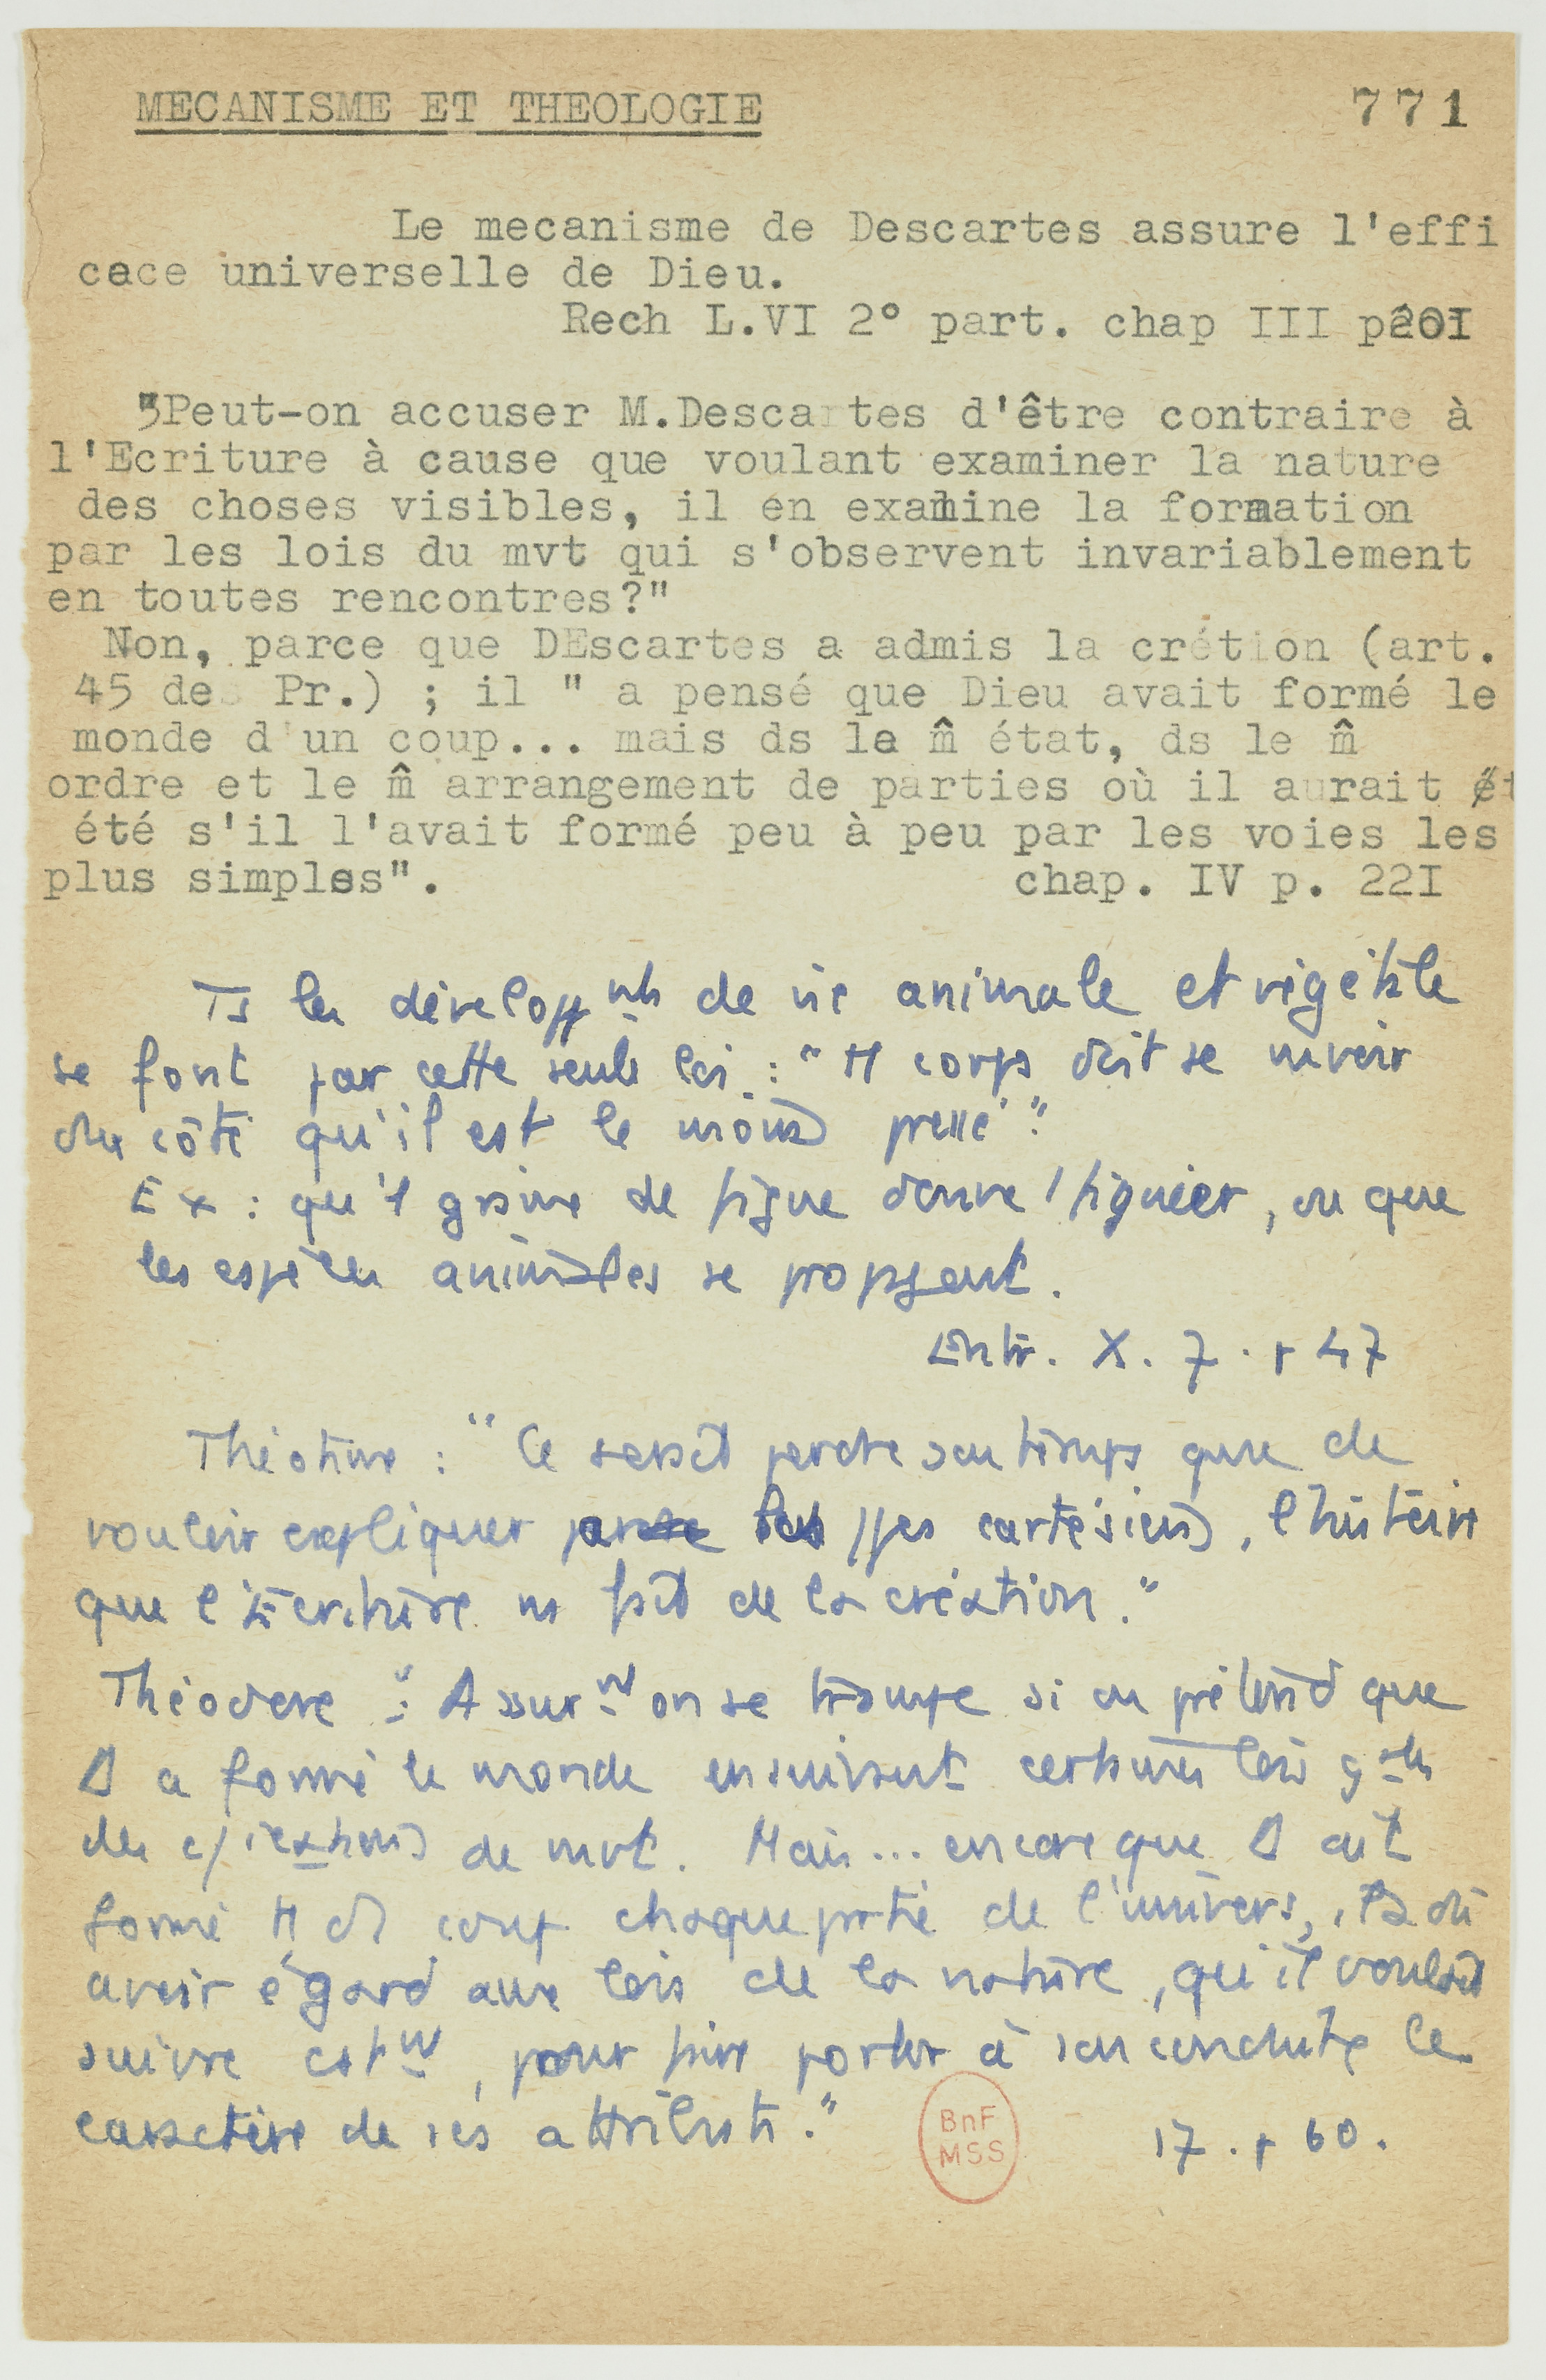 MECANISME ET THEOLOGIE
771
Le mecanisme de Descartes assure l'effi
cace universelle de Dieu.
Rech L.VI 2° part. chap III p201
"Peut-on accuser M.Descartes d'être contraire à
l'Ecriture à cause que voulant examiner la nature
des choses visibles, il en examine la formation
par les lois du mvt qui s'observent invariablement
en toutes rencontres?"
Non, parce que DEscartes a admis la crétion (art.
45 des Pr.) ; il " a pensé que Dieu avait formé le
monde d'un coup... mais ds le m̂ état, ds le m̂
ordre et le m̂ arrangement de parties où il aurait ét
été s'il l'avait formé peu à peu par les voies les
plus simples".
chap. IV p. 22I
Ts les développnts de vie animale et végétale
se font par cette seule loi : "Tt corps doit se mvoir
du côté qu'il est le moins pressé".
Ex : qu'1 graine de figue donne 1 figuier, ou que
les espèces animales se propagent.
Entr. X. 7. p 47
Théotime : "Ce serait perdre son temps que de
vouloir expliquer par les ppes cartésiens, l'histoire
que l'Ecriture ns fait de la création."
Théodore : "Assurnt on se trompe si on prétend que
D a formé le monde en suivant certaines lois gales
des c/ications de mvt. Mais... encore que D ait
formé tt d'1 coup chaque partie de l'univers, il a dû
avoir égard aux lois de la nature, qu'il voulait
suivre cstnt, pour faire porter à sa conduite le
caractère de ses attributs."
17. p 60.
BnF
MSS